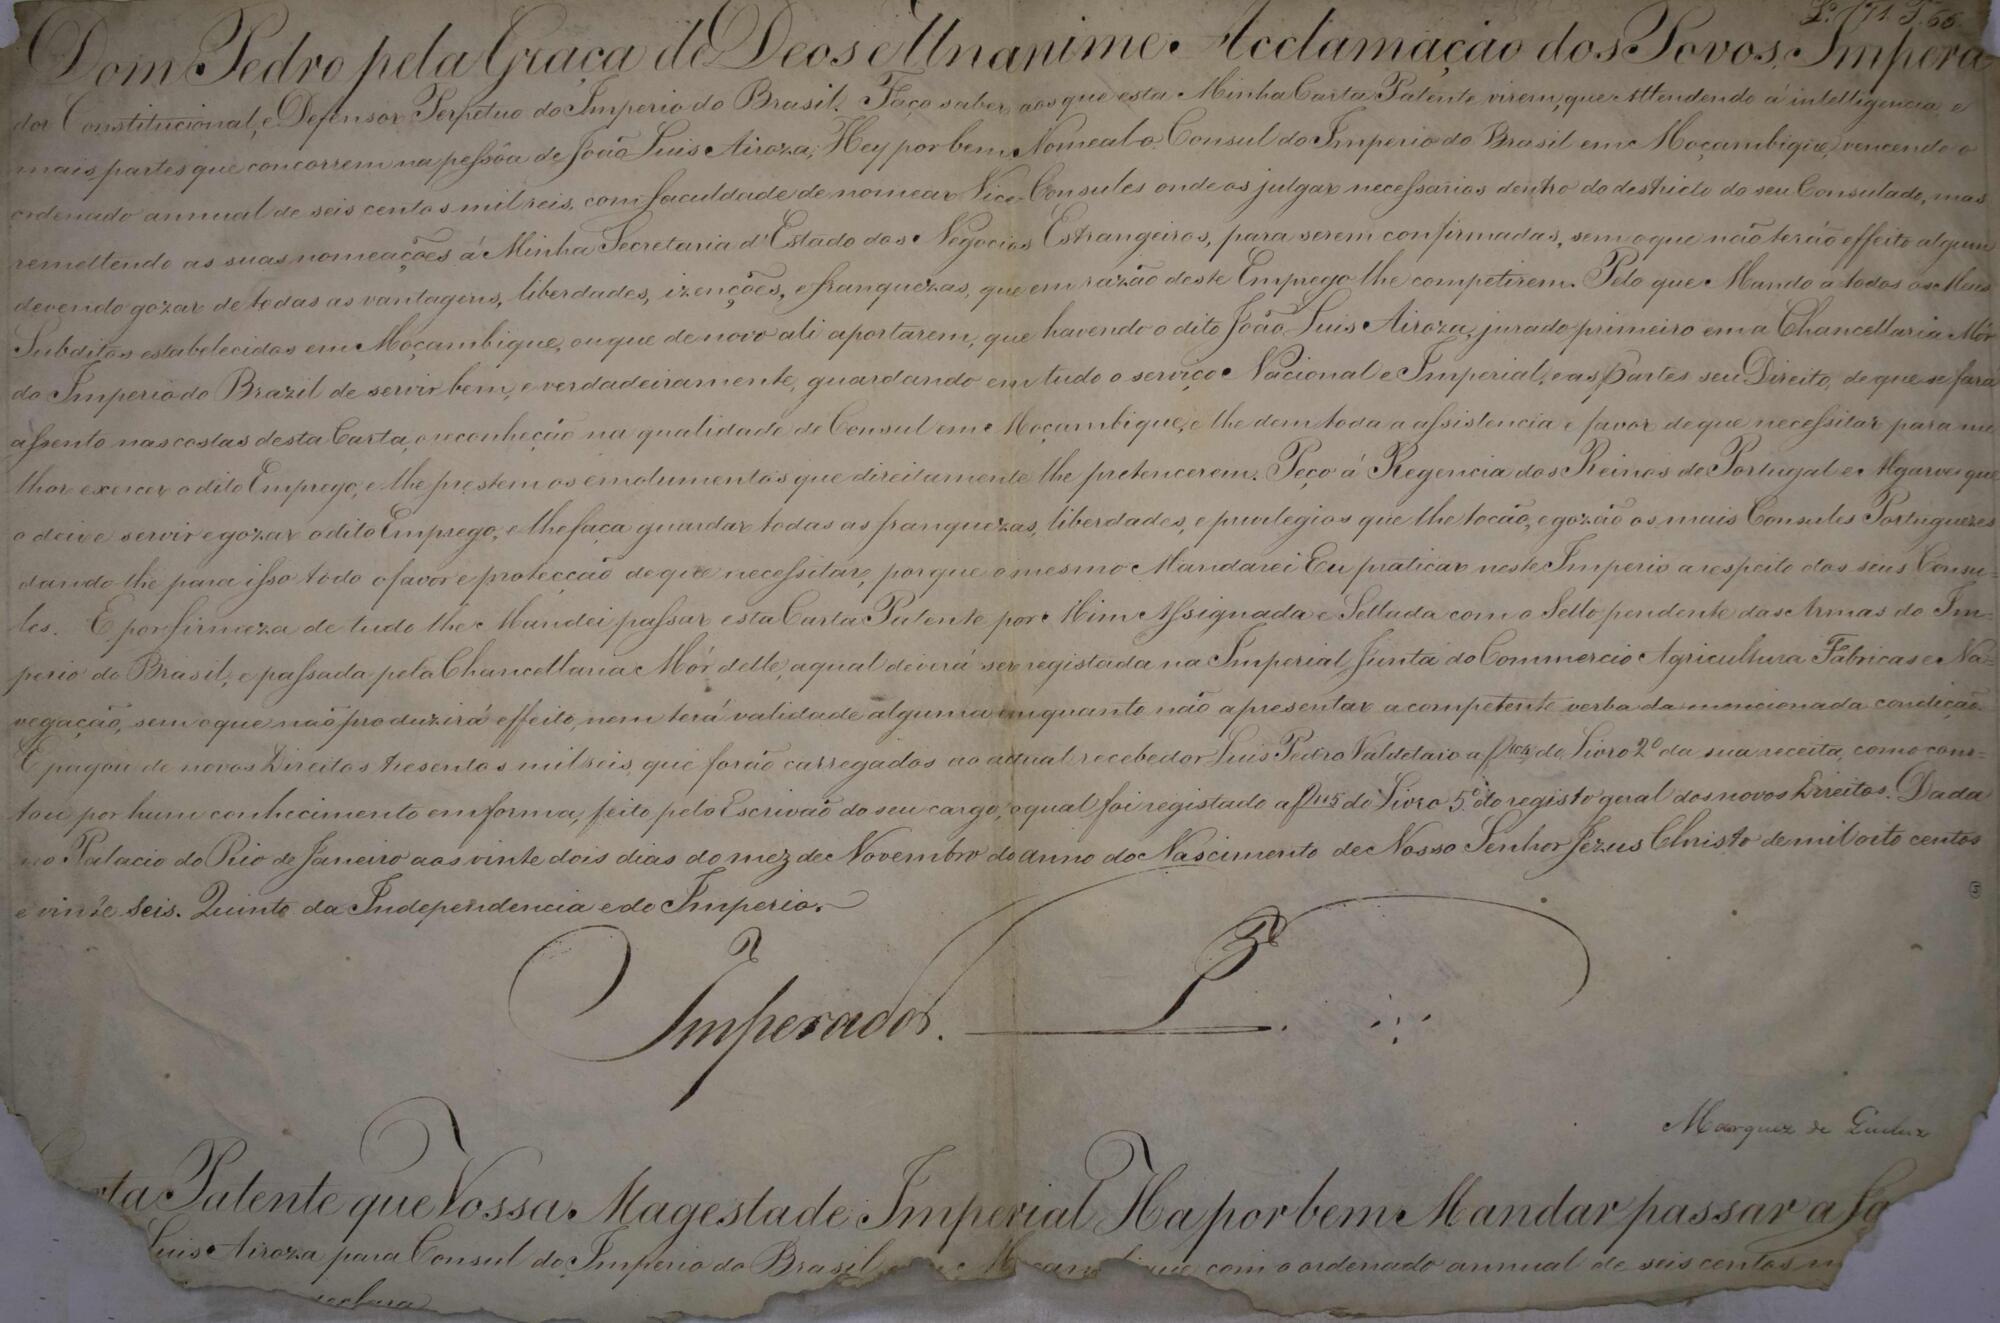 Lº. 171. F. 65.
Dom Pedro pela Graça de Deos e Unanime Acclamação dos Povos, Impera
dor Constitucional, e Defensor Perpetuo do Imperio do Brasil. Faço saber aos que esta Minha Carta Patente virem, que Attendendo á intelligencia, e
mais partes que concorrem na pessôa de João Luis Airoza; Hey por bem Nomealo Consul do Imperio do Brasil em Moçambique, vencendo o
ordenado annual de seis centos mil reis, com faculdade de nomear Vice-Consules onde os julgar necessarios dentro do destricto do seu Consulado, mas
remettendo as suas nomeações á Minha Secretaria d'Estado dos Negocios Estrangeiros, para serem confirmadas, sem o que não terão effeito algum
devendo gozar de todas as vantagens, liberdades, izenções, e franquezas, que em razão deste Emprego lhe competirem. Pelo que Mando a todos os Meus
Subditos estabelecidos em Moçambique, ou que de novo ali aportarem, que havendo o dito João Luis Airoza, jurado primeiro em a Chancellaria Mór
do Imperio do Brazil de servir bem, e verdadeiramente, guardando em tudo o serviço Nacional e Imperial, e as Partes seu Direito, de que se fará
assento nas costas desta Carta, o reconheção na qualidade de Consul em Moçambique, e lhe dem toda a assistencia e favor de que necessitar para me
lhor exercer o dito Emprego, e lhe prestem os emolumentos que direitamente lhe pretencerem. Peço á Regencia dos Reinos de Portugal e Algarves que
o deixe servir e gozar o dito Emprego, e lhe faça guardar todas as franquezas, liberdades, e privilegios que lhe tocão, e gozão os mais Consules Portuguezes
dando lhe para isso todo o favor e protecção de que necessitar, porque o mesmo Mandarei Eu praticar neste Imperio a respeito dos seus Consu-
les. E por firmeza de tudo lhe Mandei passar esta Carta Patente por Mim Assignada e Sellada com o Sello pendente das Armas do Im-
perio do Brasil, e passada pela Chancellaria Mór delle, a qual deverá ser registada na Imperial Junta do Commercio Agricultura Fabricas e Na-
vegação, sem o que não produzirá effeito, nem terá validade alguma emquanto não apresentar a competente verba da mencionada condição.
E pagou de novos Direitos tresentos mil reis, que forão carregados ao actual recebedor Luis Pedro Valdetaro a f do Livro 2º da sua receita, como cons-
tou por hum conhecimento em forma, feito pelo Escrivão do seu cargo, o qual foi registado a f do Livro 5º. do registo geral dos novos Direitos. Dada
no Palacio do Rio de Janeiro aos vinte dois dias do mez de Novembro do anno do Nascimento de Nosso Senhor Jezus Christo de mil oito centos
e vinte seis. Quinto da Independencia e do Imperio.
Imperador. P.
Marquez de
Carta Patente que Vossa Magestade Imperial Ha por bem Mandar passar a Jo
Luis Airoza para Consul do Imperio do Brasil em Moçambique com o ordenado annual de seis centos m
declara